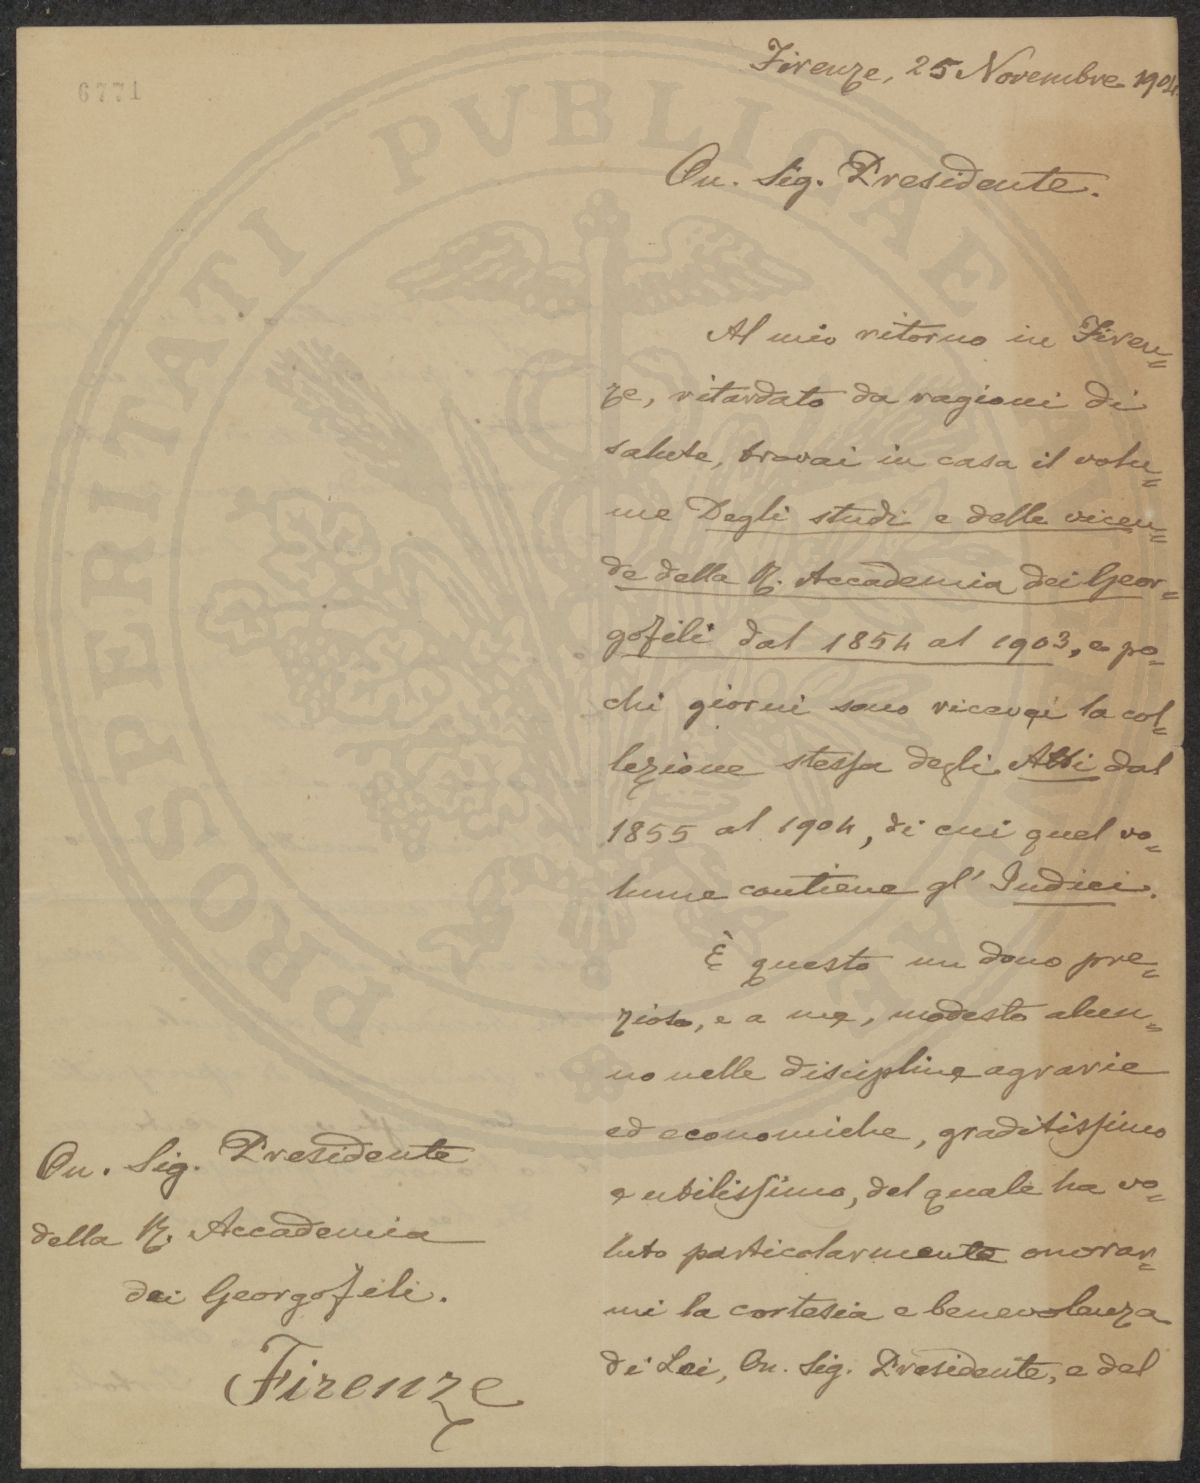 6771
Firenze, 25 Novembre 1904.
On. Sig. Presidente.
Al mio ritorno in Firen=
ze, ritardato da ragioni di
salute, trovai in casa il volu=
me Degli studi e delle vicen=
de della R. Accademia dei Geor=
gofili dal 1854 al 1903, e po=
chi giorni sono ricevei la col=
lezione stessa degli Atti dal
1855 al 1904, di cui quel vo=
lume contiene gl' Indici.
È questo un dono pre=
zioso, e a me, modesto alun=
no nelle discipline agrarie
ed economiche, graditissimo
e utilissimo, del quale ha vo=
luto particolarmente onorar=
mi la cortesia e benevolenza
di Lei, On. Sig. Presidente, e del
On. Sig. Presidente
della R. Accademia
dei Georgofili.
Firenze
PROSPERITATI PVBLICAE